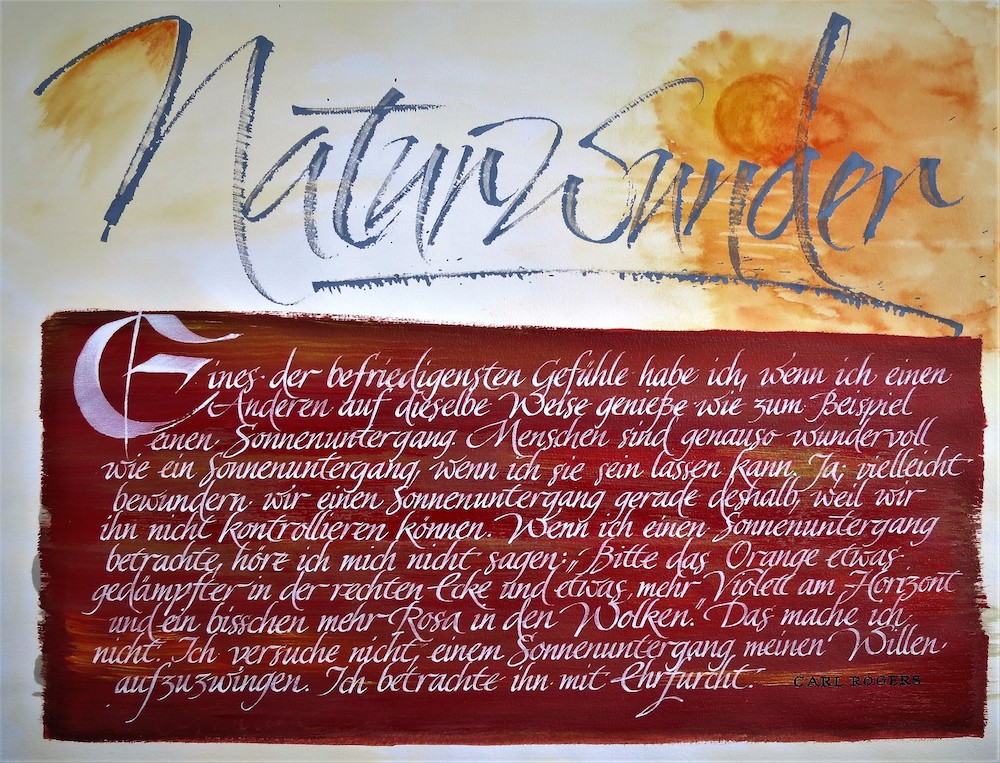 Naturwunder
Eines der befriedigensten Gefühle habe ich, wenn ich einen
Anderen auf dieselbe Weise genieße wie zum Beispiel
einen Sonnenuntergang. Menschen sind genauso wundervoll
wie ein Sonnenuntergang, wenn ich sie sein lassen kann. Ja, vielleicht
bewundern wir einen Sonnenuntergang gerade deshalb, weil wir
ihn nicht kontrollieren können. Wenn ich einen Sonnenuntergang
betrachte, höre ich mich nicht sagen: „Bitte das Orange etwas
gedämpfter in der rechten Ecke und etwas mehr Violett am Horizont
und ein bisschen mehr Rosa in den Wolken." Das mache ich
nicht. Ich versuche nicht einem Sonnenuntergang meinen Willen
aufzuzwingen. Ich betrachte ihn mit Ehrfurcht. CARL ROGERS